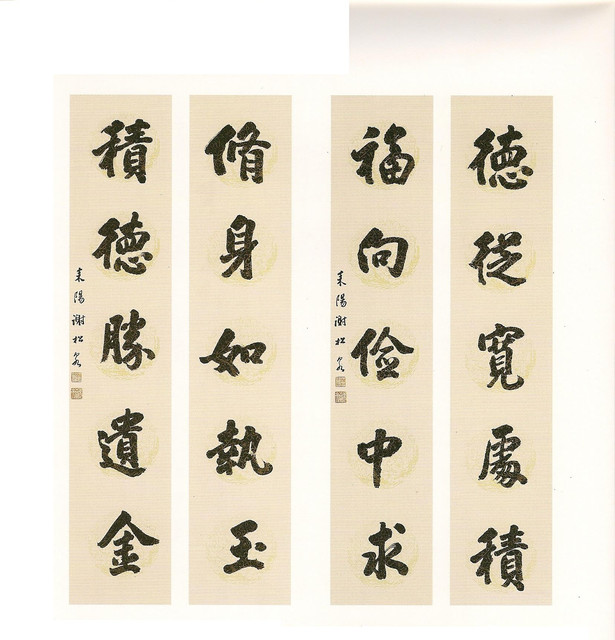 德從寬處積
福向儉中求
耒陽謝松泉
脩身如執玉
積德勝遺金
耒陽謝松泉